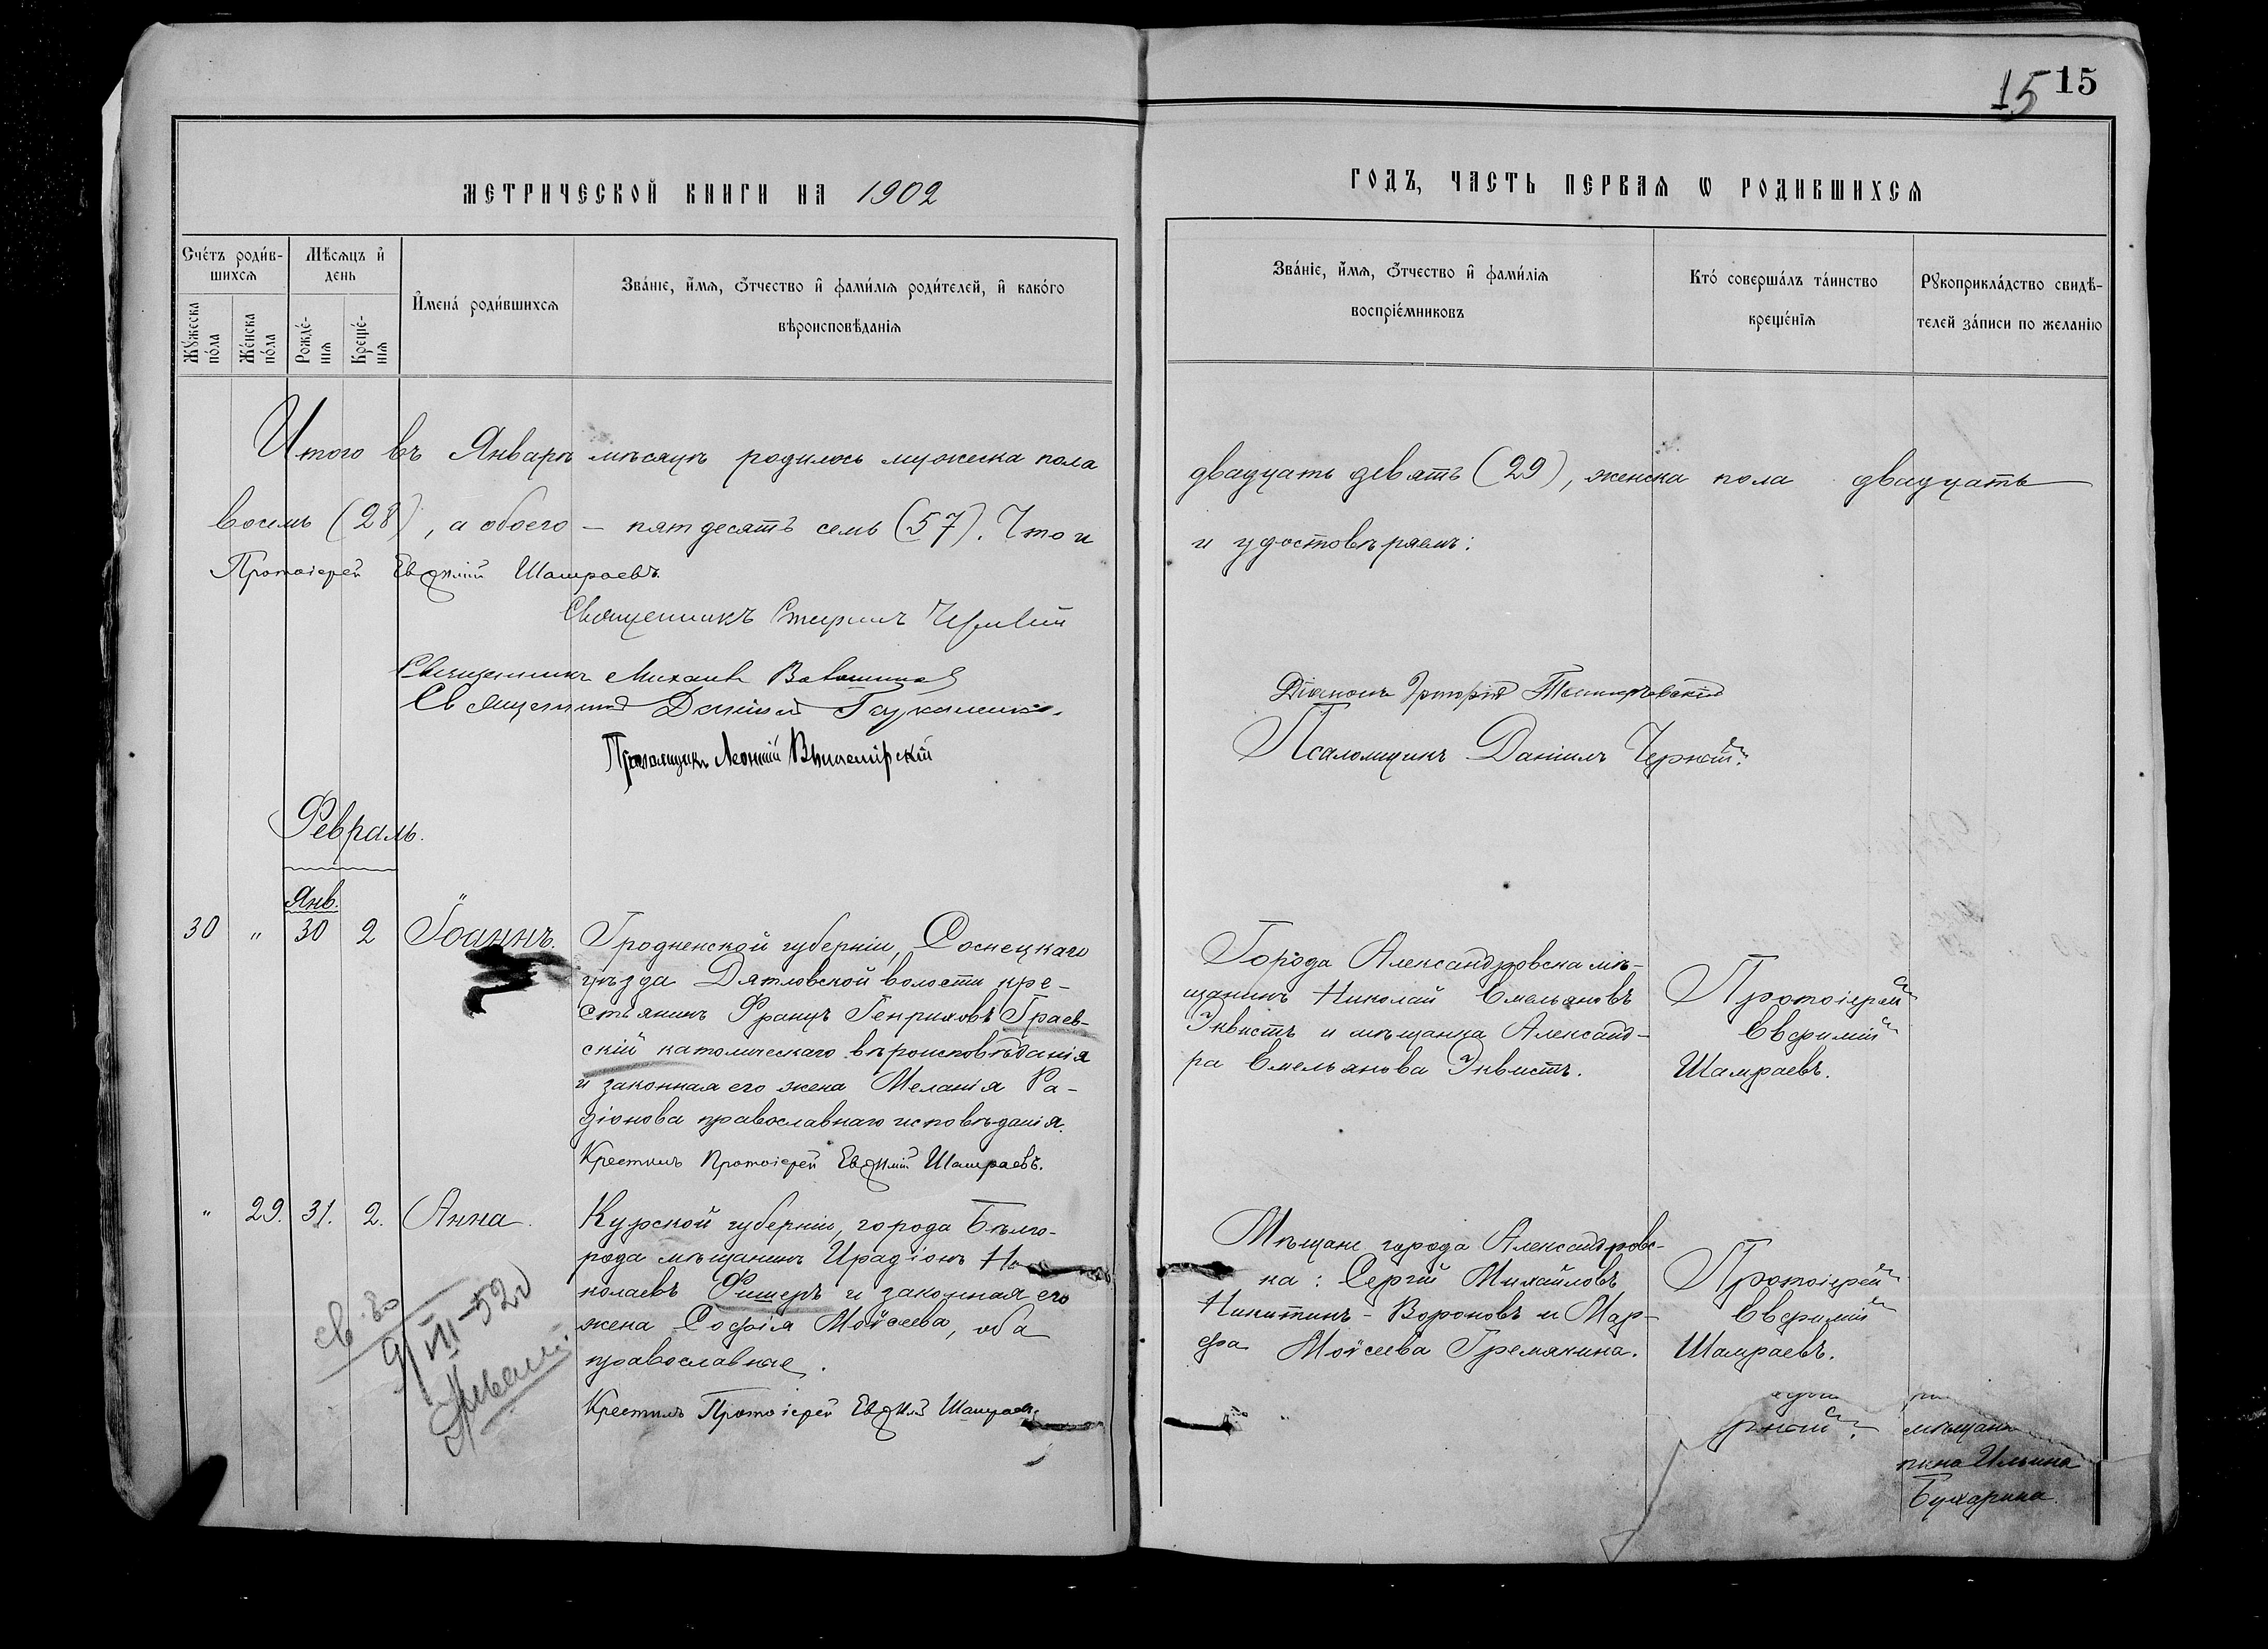 15 15
МЕТРИЧЕСКОЙ КНИГИ НА 1902
ГОДЪ, ЧАСТЬ ПЕРВАѦ Ѡ РОДИВШИХСѦ
Сче́тъ роди́в-
шихсѧ
Мѣ́сѧцъ и҆
день
Мꙋ́жеска
по́ла
Же́нска
по́ла
Рожде́-
нїѧ
Креще́-
нїѧ
И҆мена̀ роди́вшихсѧ
Зва́нїе, и҆́мѧ, ѻ҆́тчество и҆ фами́лїѧ роди́телей, и҆ како́го
вѣроисповѣ́данїѧ
Зва́нїе, и҆́мѧ, ѻ҆́тчество и҆ фами́лїѧ
воспрїе́мниковъ
Кто̀ соверша́лъ та́инство
креще́нїѧ
Рꙋкоприкла́дство свидѣ́-
телей за́писи по жела́нїю
Итого въ Январѣ мѣсяцѣ родилось мужеска пола
двадцать девять (29), женска пола двадцать
восемь (28), а обоего — пятьдесятъ семь (57). Что и
и удостовѣряемъ:
Протоіерей Евѳимій Шамраевъ.
Священникъ
Священникъ Михаилъ
Священникъ Даніилъ
Псаломщикъ Леонтій
Діаконъ Григорій
Псаломщикъ Даніилъ Черный.
Февраль.
Янв.
30 " 30 2 Іоаннъ.
Гродненской губерніи, Соснецкаго
уѣзда Дятловской волости кре-
стьянинъ Францъ Генриховъ Граев-
скій католическаго вѣроисповѣданія
и законная его жена Меланія Ра-
діонова православнаго исповѣданія.
Крестилъ Протоіерей Евѳимій Шамраевъ.
Города Александровска мѣ-
щанинъ Николай Емельяновъ
Энвистъ и мѣщанка Александ-
ра Емельянова Энвистъ.
Протоіерей
Евфимій
Шамраевъ.
" 29. 31. 2. Анна.
Курской губерніи, города Бѣлго-
рода мѣщанинъ Ирадіонъ Ни-
колаевъ Фишеръ и законная его
жена Софія Моѵсеева, оба
православные.
Крестилъ Протоіерей Евѳимій Шамраевъ.
Мѣщане города Александровс-
ка: Сергій Михайловъ
Никитинъ-Вороновъ и Мар-
фа Моѵсеева Гремякина.
Протоіерей
Евфимій
Шамраевъ.
св-во
9/VII-52
рный.
мѣщани
нина Ильина
Бухарина.